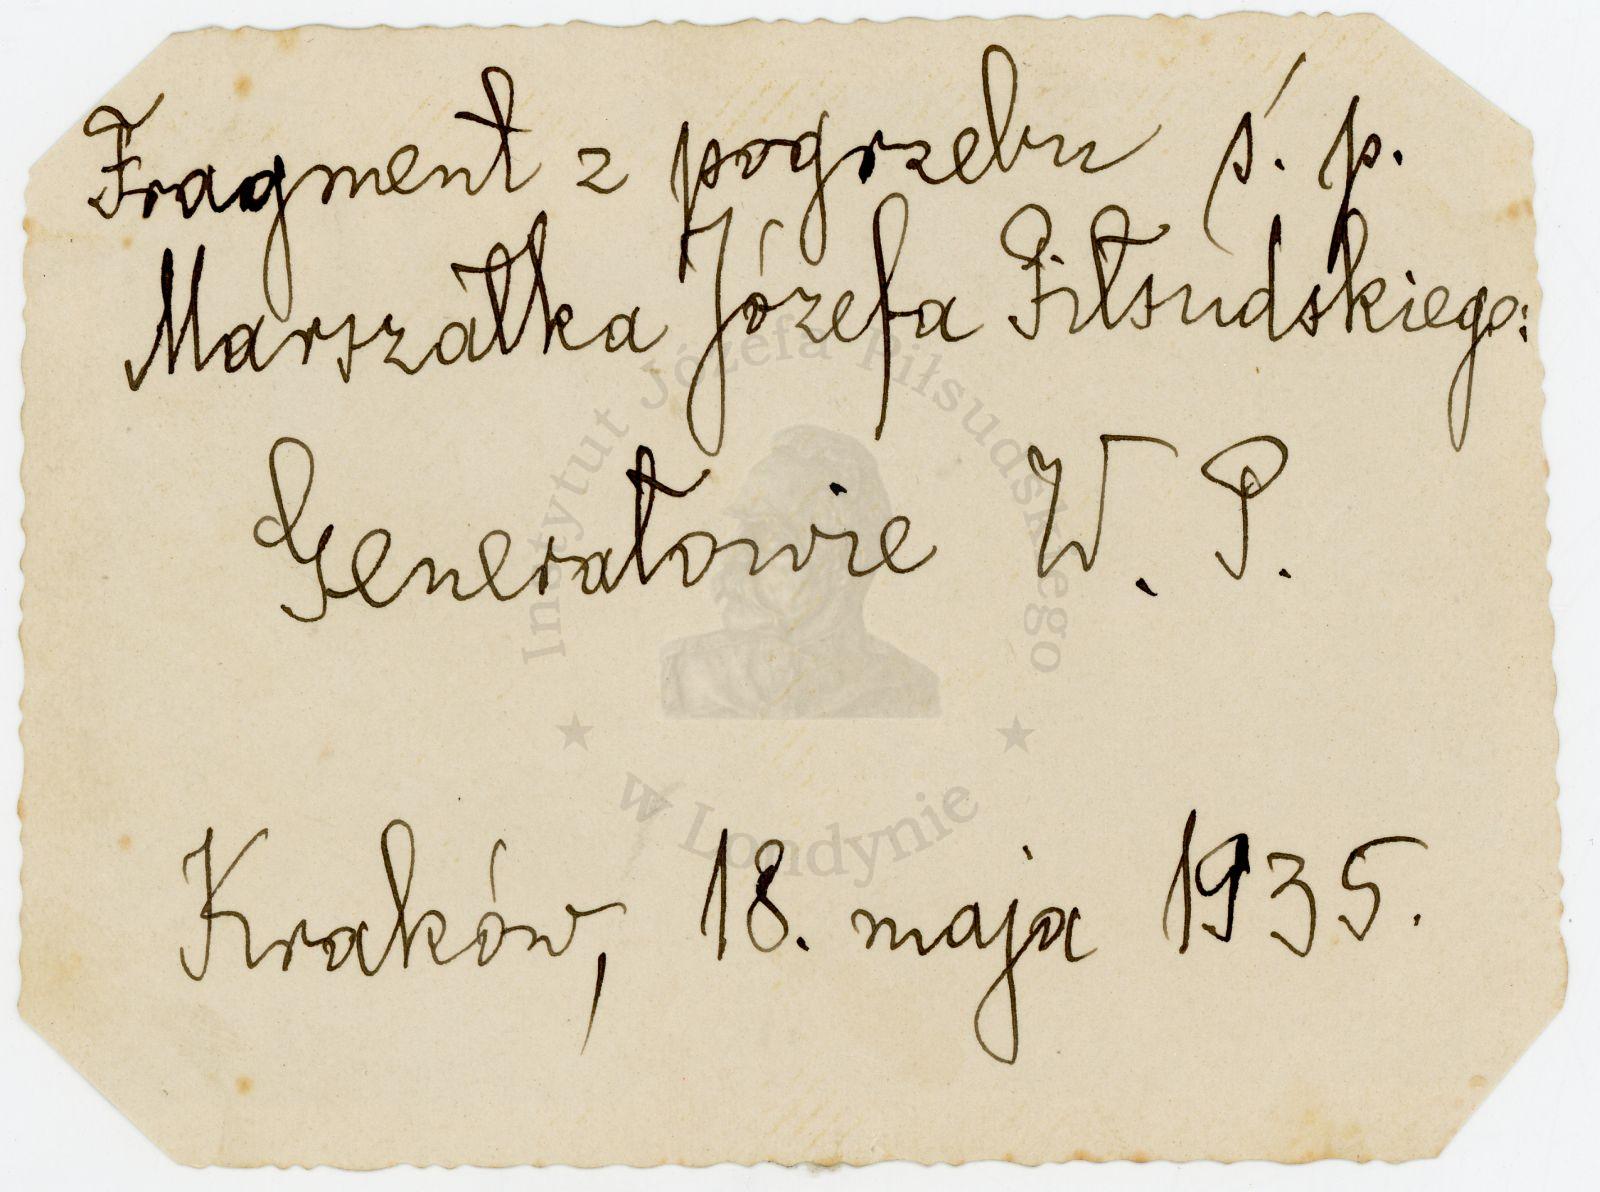 Fragment z pogrzebu ś. p.
Marszałka Józefa Piłsudskiego:
Generałowie W. P.
Kraków, 18. maja 1935.
Instytut Józefa Piłsudskiego
w Londynie